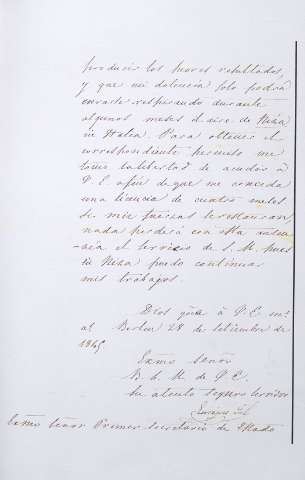 producir los peores resultados,
y que mi dolencia solo podrá
curarse respirando durante
algunos meses el aire de Niza
ú Italia. Para obtener el
correspondiente permiso me
tomo la libertad de acudir á
V. E. afin de que me conceda
una licencia de cuatro meses
si mis fuerzas
nada perderá con ella
el servicio de S. M. pues
Niza puedo continuar
mis trabajos.
Dios gue á V. E. ms
as Berlin 28 de Setiembre de
1865
Exmo Señor
B. L. M. de V. E.
su atento seguro servidor
Exmo Señor Primer Secretario de Estado